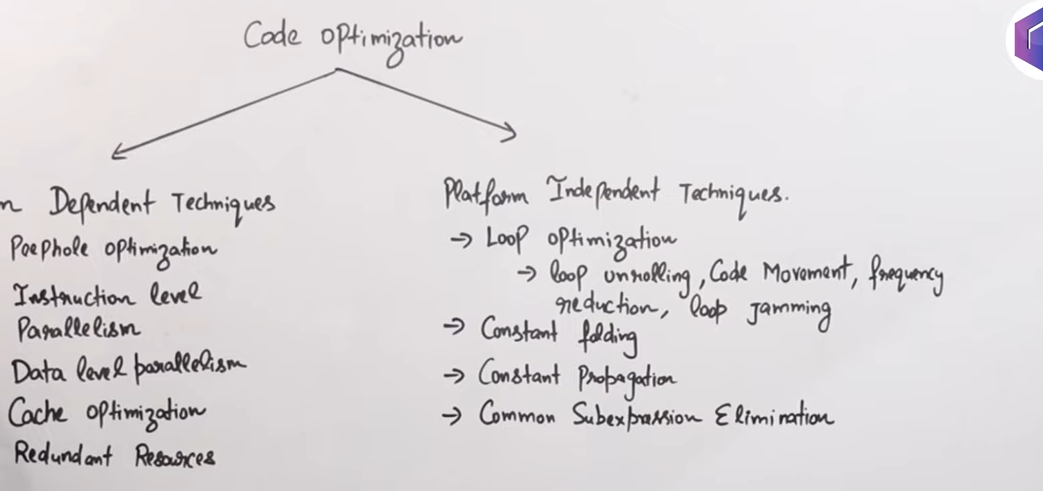 Code optimization
n Dependent Techniques
Peephole optimization
Instruction level
Parallelism
Data level parallelism
Cache optimization
Redundant Resources
Platform Independent Techniques.
→ Loop optimization
→ loop unrolling, Code Movement, frequency
reduction, loop jamming
→ Constant folding
→ Constant Propagation
→ Common Subexpression Elimination